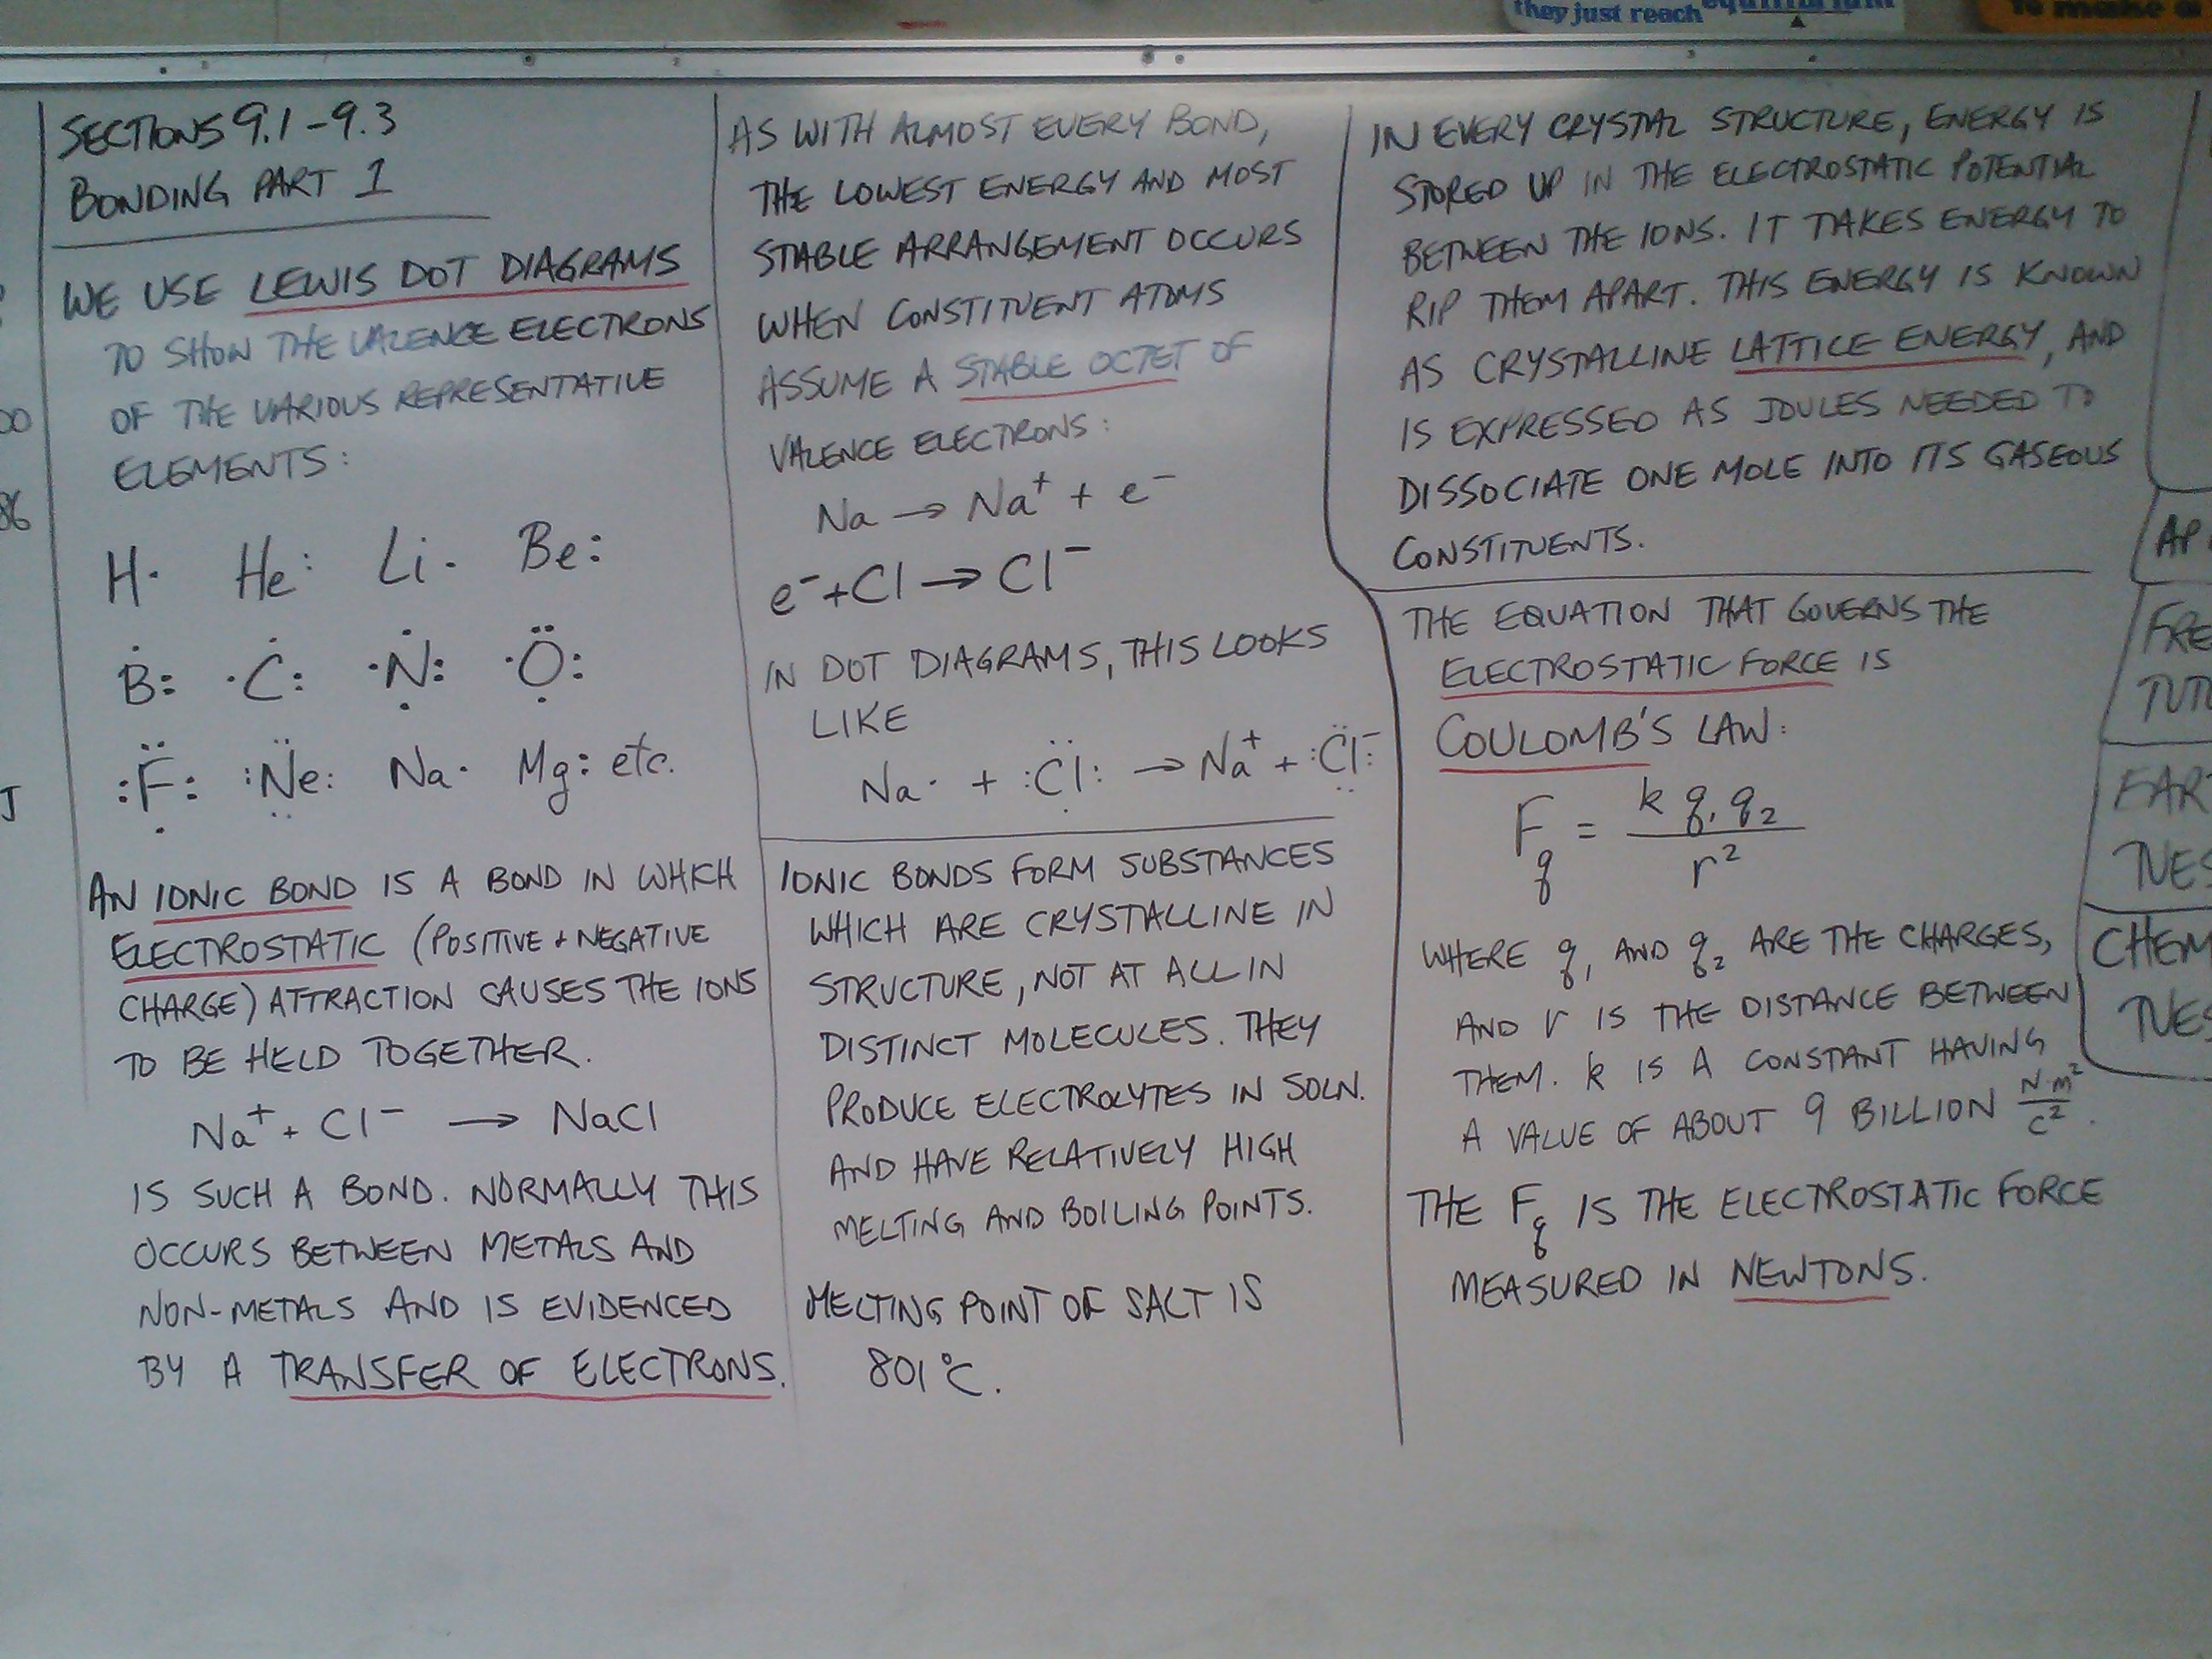 they just reach equilibrium
to make a
SECTIONS 9.1-9.3
BONDING PART 1
WE USE LEWIS DOT DIAGRAMS
TO SHOW THE VALENCE ELECTRONS
OF THE VARIOUS REPRESENTATIVE
ELEMENTS:
H· He: Li· Be:
Ḃ: ·Ċ: ·Ṇ̇: ·Ọ̈:
:F̣̈: :N̤̈e: Na· Mg: etc.
AN IONIC BOND IS A BOND IN WHICH
ELECTROSTATIC (POSITIVE + NEGATIVE
CHARGE) ATTRACTION CAUSES THE IONS
TO BE HELD TOGETHER.
Na⁺ + Cl⁻ → NaCl
IS SUCH A BOND. NORMALLY THIS
OCCURS BETWEEN METALS AND
NON-METALS AND IS EVIDENCED
BY A TRANSFER OF ELECTRONS.
AS WITH ALMOST EVERY BOND,
THE LOWEST ENERGY AND MOST
STABLE ARRANGEMENT OCCURS
WHEN CONSTITUENT ATOMS
ASSUME A STABLE OCTET OF
VALENCE ELECTRONS:
Na → Na⁺ + e⁻
e⁻ + Cl → Cl⁻
IN DOT DIAGRAMS, THIS LOOKS
LIKE
Na· + :C̣̈l: → Na⁺ + :C̤̈l:⁻
IONIC BONDS FORM SUBSTANCES
WHICH ARE CRYSTALLINE IN
STRUCTURE, NOT AT ALL IN
DISTINCT MOLECULES. THEY
PRODUCE ELECTROLYTES IN SOLN.
AND HAVE RELATIVELY HIGH
MELTING AND BOILING POINTS.
MELTING POINT OF SALT IS
801°C.
IN EVERY CRYSTAL STRUCTURE, ENERGY IS
STORED UP IN THE ELECTROSTATIC POTENTIAL
BETWEEN THE IONS. IT TAKES ENERGY TO
RIP THEM APART. THIS ENERGY IS KNOWN
AS CRYSTALLINE LATTICE ENERGY, AND
IS EXPRESSED AS JOULES NEEDED TO
DISSOCIATE ONE MOLE INTO ITS GASEOUS
CONSTITUENTS.
THE EQUATION THAT GOVERNS THE
ELECTROSTATIC FORCE IS
COULOMB'S LAW:
F_q = k q₁ q₂ / r²
WHERE q₁ AND q₂ ARE THE CHARGES,
AND r IS THE DISTANCE BETWEEN
THEM. k IS A CONSTANT HAVING
A VALUE OF ABOUT 9 BILLION N·m²/C².
THE F_q IS THE ELECTROSTATIC FORCE
MEASURED IN NEWTONS.
AP
FRE
TUTO
EAR
TUES
CHEM
TUES